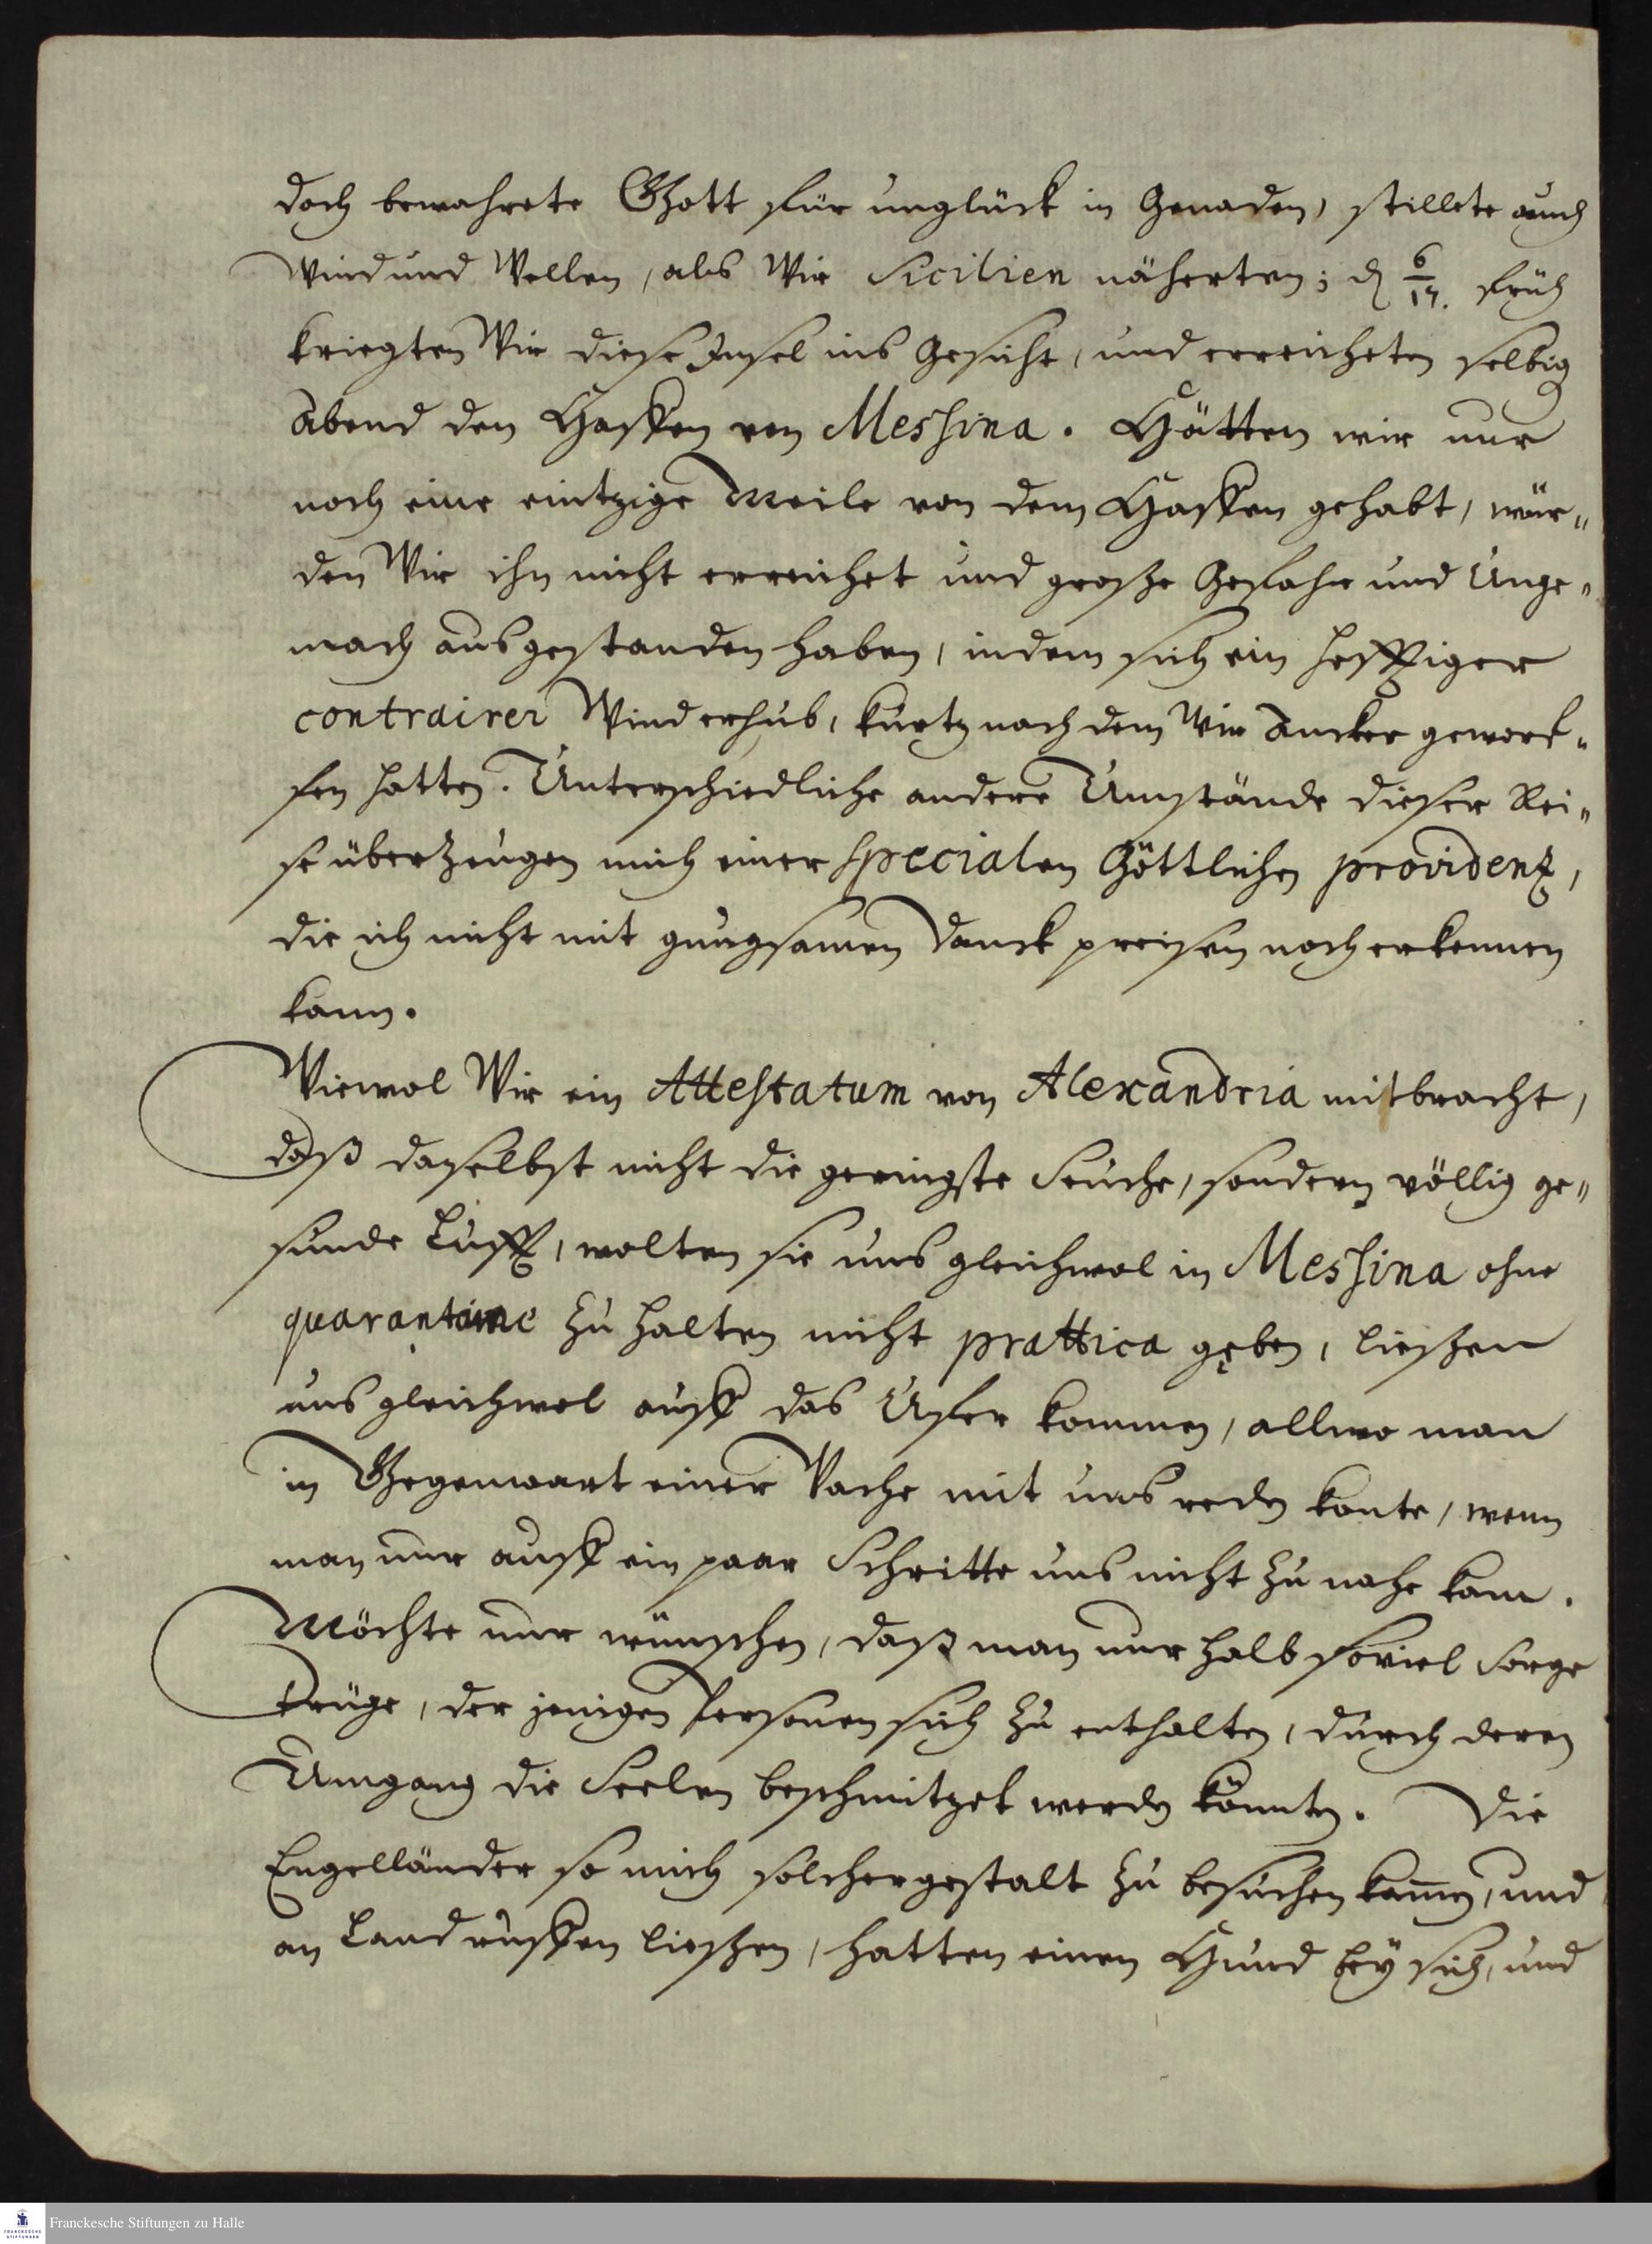 doch bewahrete Gott für unglück in Genaden, stillete auch
Wind und Wellen, als Wir Sicilien näherten; d 6/17. früh
kriegten Wir diese Insel ins Gesicht, und erreicheten selbig
Abend den Haffen von Messina. Hätten wir nur
noch eine eintzige Meile von dem Haffen gehabt, wür„
den Wir ihn nicht erreichet und große Gefahr und Unge„
mach ausgestanden haben, indem sich ein hefftiger
contrairer Wind erhub, kurtz nach dem Wir Ancker geworf„
fen hatten. Unterschiedliche andere Umstände dieser Rei„
se überzeugen mich einer specialen Göttlichen providenz,
die ich nicht mit gnugsamen Danck preisen noch erkennen
kann.
Wiewol Wir ein Attestatum von Alexandria mitbracht,
daß daselbst nicht die geringste Seuche, sondern völlig ge„
sunde Lufft, wolten sie uns gleichwol in Messina ohne
quarantaine zu halten nicht prattica geben, ließen
uns gleichwol auff das Ufer kommen, allwo man
in Gegenwart einer Wache mit uns reden konte, wenn
man nur auff ein paar Schritte uns nicht zu nahe kam.
Möchte nur wünschen, daß man nur halb soviel Sorge
trüge, der jenigen Personen sich zu enthalten, durch deren
Umgang die Seelen beschmitzet werden könnten. Die
Engelländer so mich solchergestalt zu besuchen kam̄en, und
an Land ruffen ließen, hatten einen Hund bey sich, und
Franckesche Stiftungen zu Halle